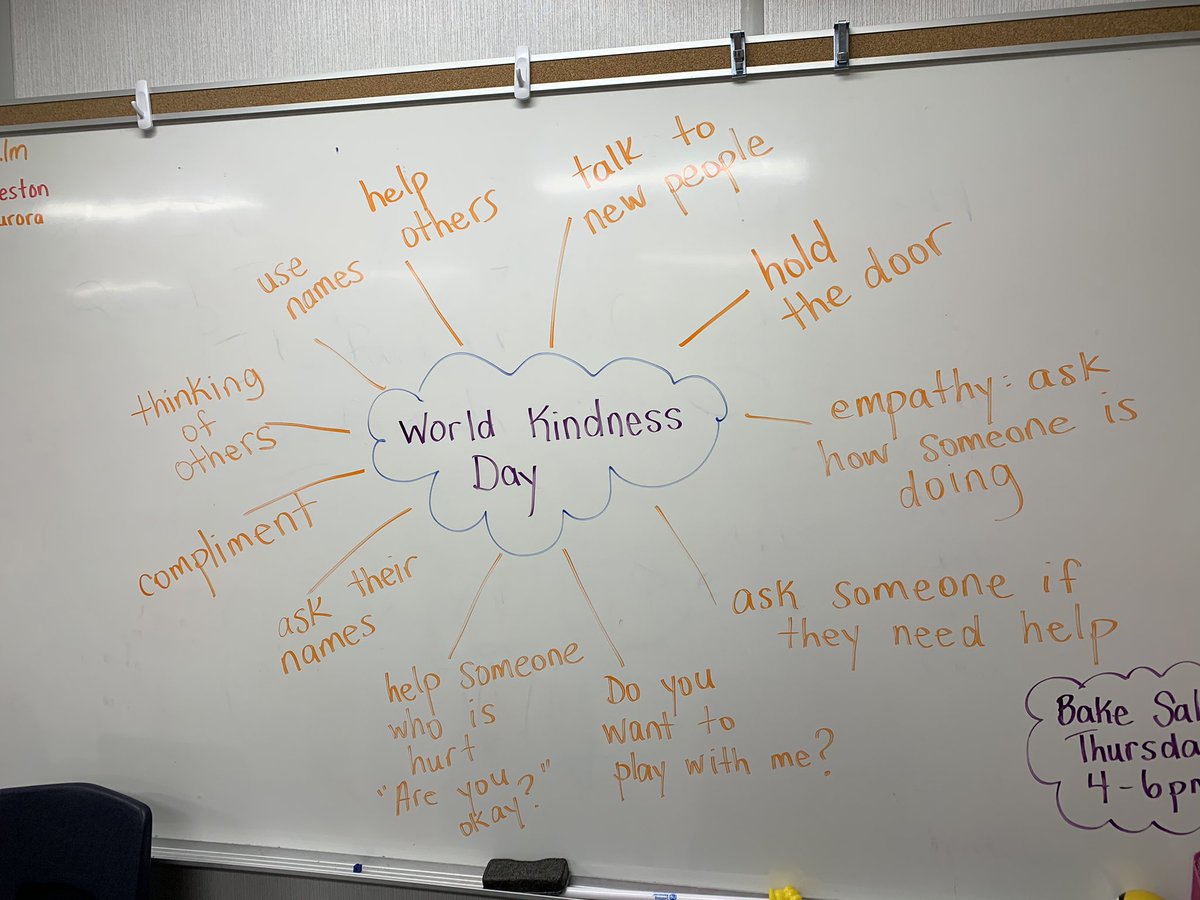 .lm
eston
urora
World Kindness
Day
help
others
talk to
new people
hold
the door
empathy: ask
how someone is
doing
ask someone if
they need help
Do you
want to
play with me?
help someone
who is
hurt
"Are you
okay?"
ask their
names
compliment
thinking
of
others
use
names
Bake Sal
Thursda
4-6pm